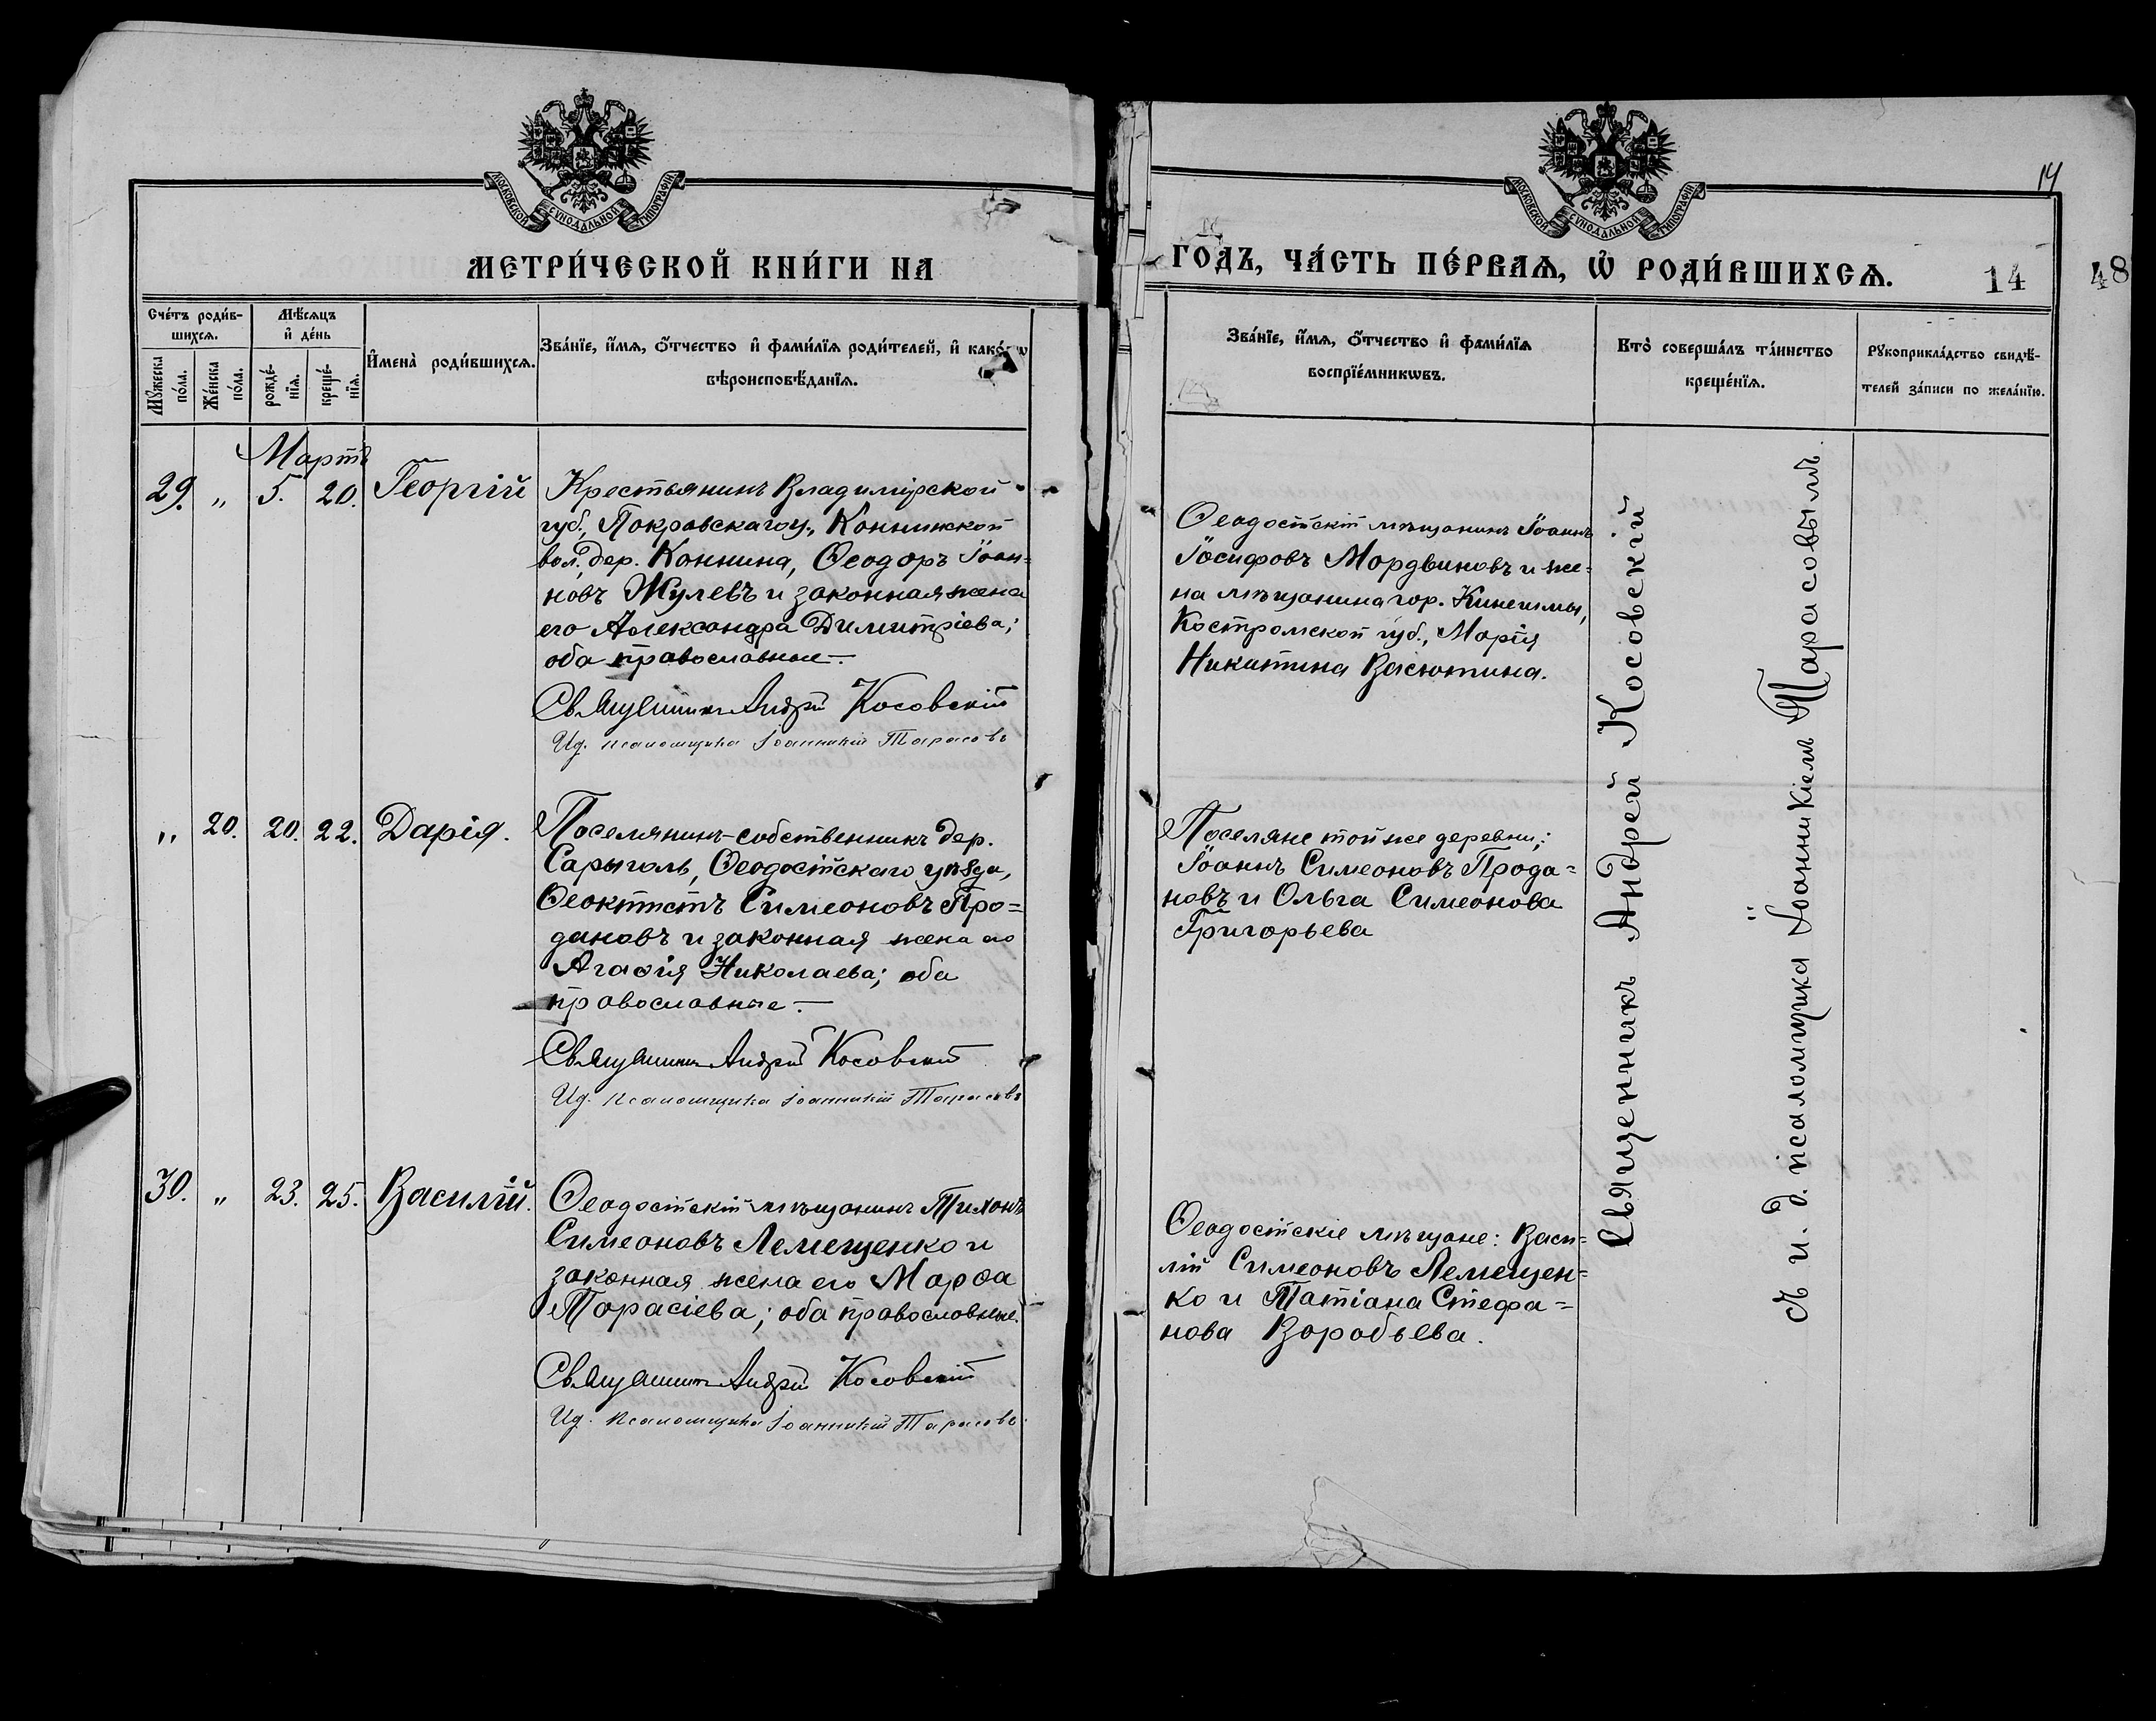 МОСКОВСКОЙ СУНОДАЛЬНОЙ ТИПОГРАФІИ
МЕТРИ́ЧЕСКОЙ КНИ́ГИ НА
Сче́тъ роди́в-
шихсѧ.
Мѣ́сѧцъ
и҆ де́нь
Мꙋ́жеска
по́ла.
Же́нска
по́ла.
рожде́-
нїѧ.
креще́-
нїѧ.
И҆мена̀ роди́вшихсѧ.
Зва́нїе, и҆́мѧ, ѻ҆́тчество и҆ фами́лїѧ роди́телей, и҆ како́гѡ
вѣроисповѣ́данїѧ.
Мартъ
29. „ 5. 20. Георгій
Крестьянинъ Владимірской
губ., Покровскаго у.,
вол., дер. Коннина, Ѳеодоръ Іоан=
новъ Жулевъ и законная жена
его Александра Димитріева;
оба православные.—
Священникъ Андрей Косовскій
И.д. псаломщика Іоанникій Тарасовъ
„ 20. 20. 22. Дарія.
Поселянинъ-собственникъ дер.
Сарыголь, Ѳеодосійскаго уѣзда,
Ѳеоктистъ Симеоновъ Про=
дановъ и законная жена его
Агаѳія Николаева; оба
православные.—
Священникъ Андрей Косовскій
И.д. псаломщика Іоанникій Тарасовъ
30. „ 23. 25. Василій.
Ѳеодосійскій мѣщанинъ Тихонъ
Симеоновъ Лемещенко и
законная жена его Марѳа
Тарасіева; оба православные.—
Священникъ Андрей Косовскій
И.д. псаломщика Іоанникій Тарасовъ.
МОСКОВСКОЙ СУНОДАЛЬНОЙ ТИПОГРАФІИ
14
ГО́ДЪ, ЧА́СТЬ ПЕ́РВАѦ, Ѡ҆ РОДИ́ВШИХСѦ.
14
48
Зва́нїе, и҆́мѧ, ѻ҆́тчество и҆ фами́лїѧ
воспрїе́мникѡвъ.
Кто̀ соверша́лъ та́инство
креще́нїѧ.
Рꙋкоприкла́дство свидѣ́-
телей за́писи по жела́нїю.
Ѳеодосійскій мѣщанинъ Іоаннъ
Іосифовъ Мордвиновъ и же=
на мѣщанина гор. Кинешмы,
Костромской губ., Марія
Никитина Васютина.
Поселяне той же деревни:
Іоаннъ Симеоновъ Прода=
новъ и Ольга Симеонова
Григорьева
Ѳеодосійскіе мѣщане: Васи=
лій Симеоновъ Лемещен=
ко и Татіана Стефа=
нова Воробьева.
Священникъ Андрей Косовскій
съ и. д. псаломщика Іоанникіемъ Тарасовымъ.